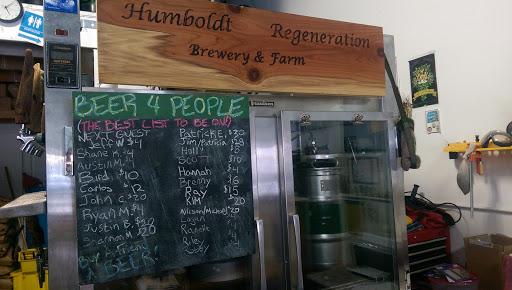 Humboldt Regeneration
Brewery & Farm
BEER 4 PEOPLE
(THE BEST LIST TO BE ON!)
NEXT GUEST
Jeff W $4
Shane K. $4
Austin M.
Burd $10
Carlos $12
John C. $20
Ryan M. $4
Justin B.
Sharron W. $20
Buy A Friend
A BEER!
Patrick E. $20
Jim/Patricia
Holl
Scott $10
Hannah $4
Brenny
Roy $15
KIM $20
Nilsson/Michael $20
Layla
Raizelle
Riley
Jody